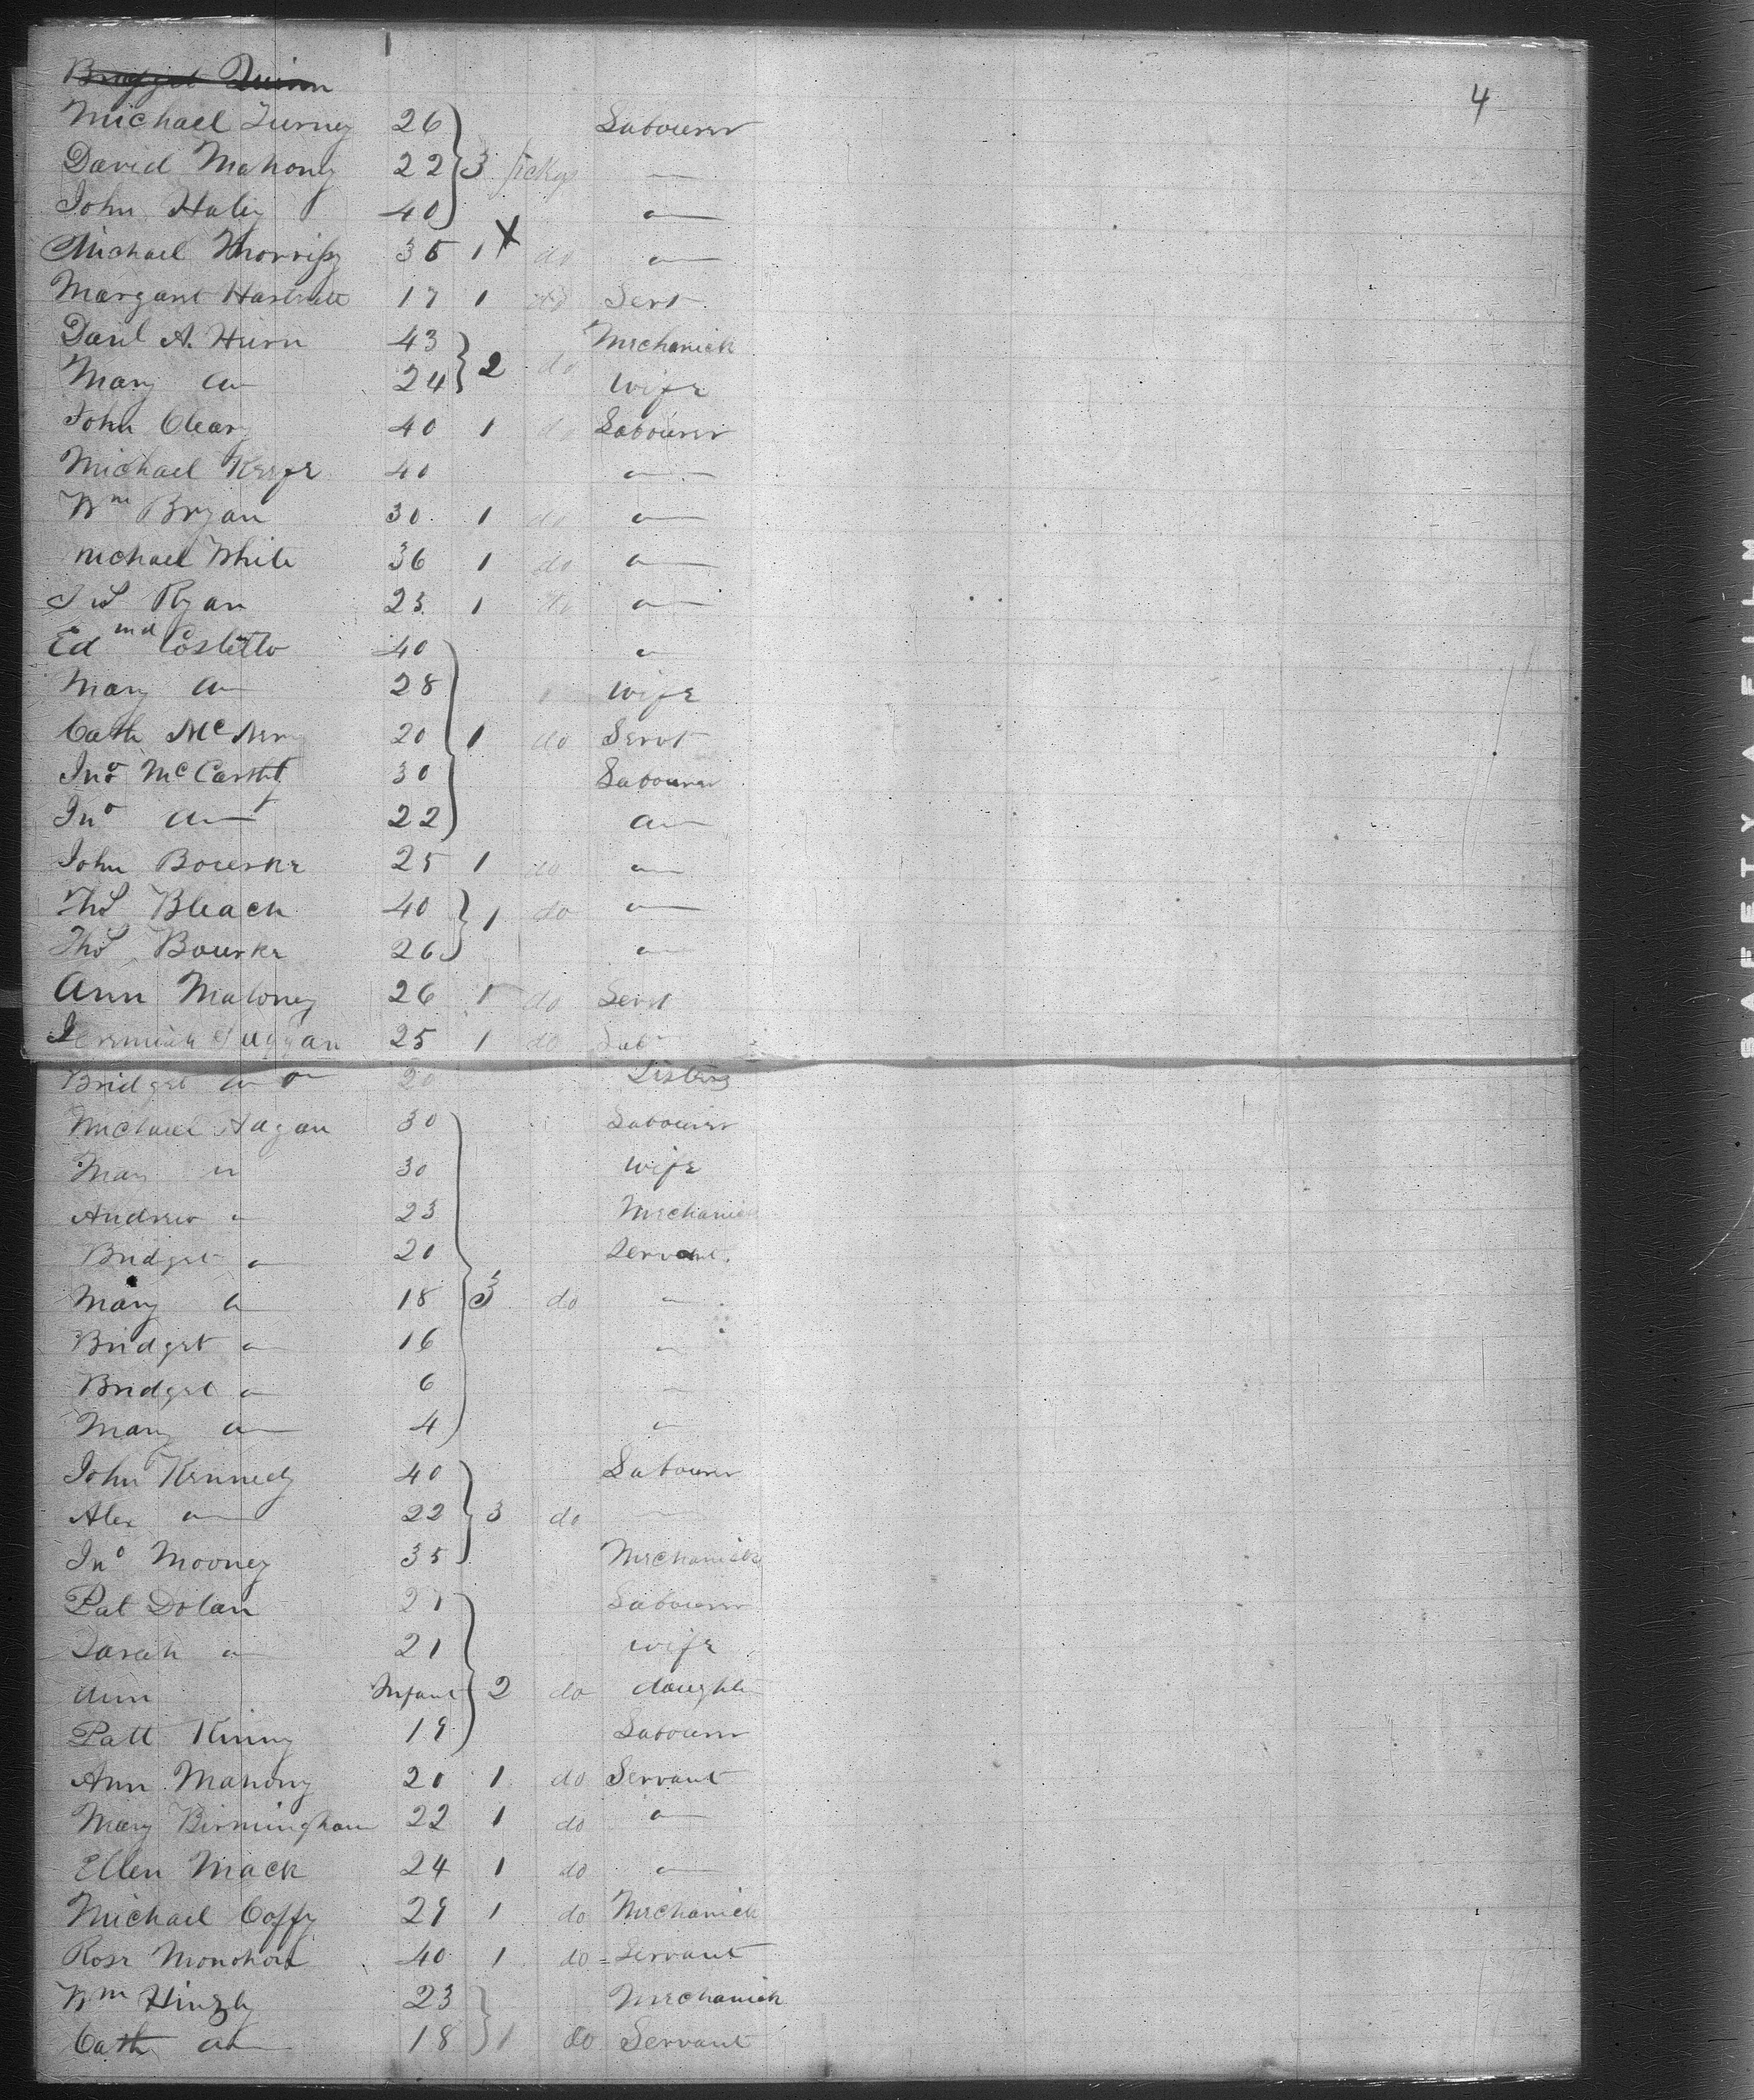 Bridget Quinn
4
Michael Turney 26 Labourer
David Mahony 22 3 —
John Haley 40 —
Michael Morrissy 35 1 X do —
Margaret 17 1 do Servt
Danl A. Hurn 43 Mechanick
Mary — 24 2 do Wife
John Cleary 40 1 do Labourer
Michael Keefe 40 —
Wm Bryan 30 1 do —
Michael White 36 1 do —
Ryan 23 1 do —
Edmd Costello 40 —
Mary — 28 Wife
Cath 20 1 do Servt
Jno McCarthy 30 Labourer
Jno — 22 —
John Bourke 25 1 do —
Thos Bleach 40 1 do —
Thos Bourke 26 —
Ann Maloney 26 1 do Servt
Jeremiah Duggan 25 1 do Labr
Bridget — 20 Sister
Michael Hagan 30 Labourer
Mary — 30 Wife
Andrew — 23 Mechanick
Bridget — 20 Servant
Mary — 18 5 do —
Bridget — 16 —
Bridget — 6 —
Mary — 4 —
John Kennedy 40 Labourer
Alex — 22 3 do —
Jno Mooney 35 Mechanick
Pat Dolan 21 Labourer
Sarah — 21 Wife
Ann Infant 2 do daughter
Patt Kinny 19 Labourer
Ann Mahony 20 1 do Servant
Mary Birmingham 22 1 do —
Ellen Mack 24 1 do —
Michael Coffy 29 1 do Mechanick
Rose 40 1 do Servant
Wm 23 Mechanick
Cath — 18 1 do Servant
SAFETY FILM